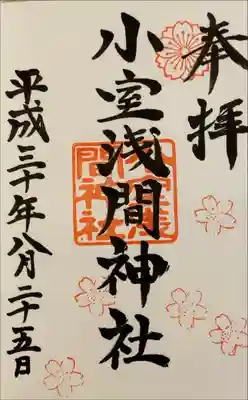 奉拝
小室浅間神社
平成三十年八月二十五日